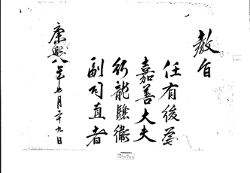 教旨
任有後爲
嘉善大夫
行龍驤衛
副司直者
康熙八年七月二十九日